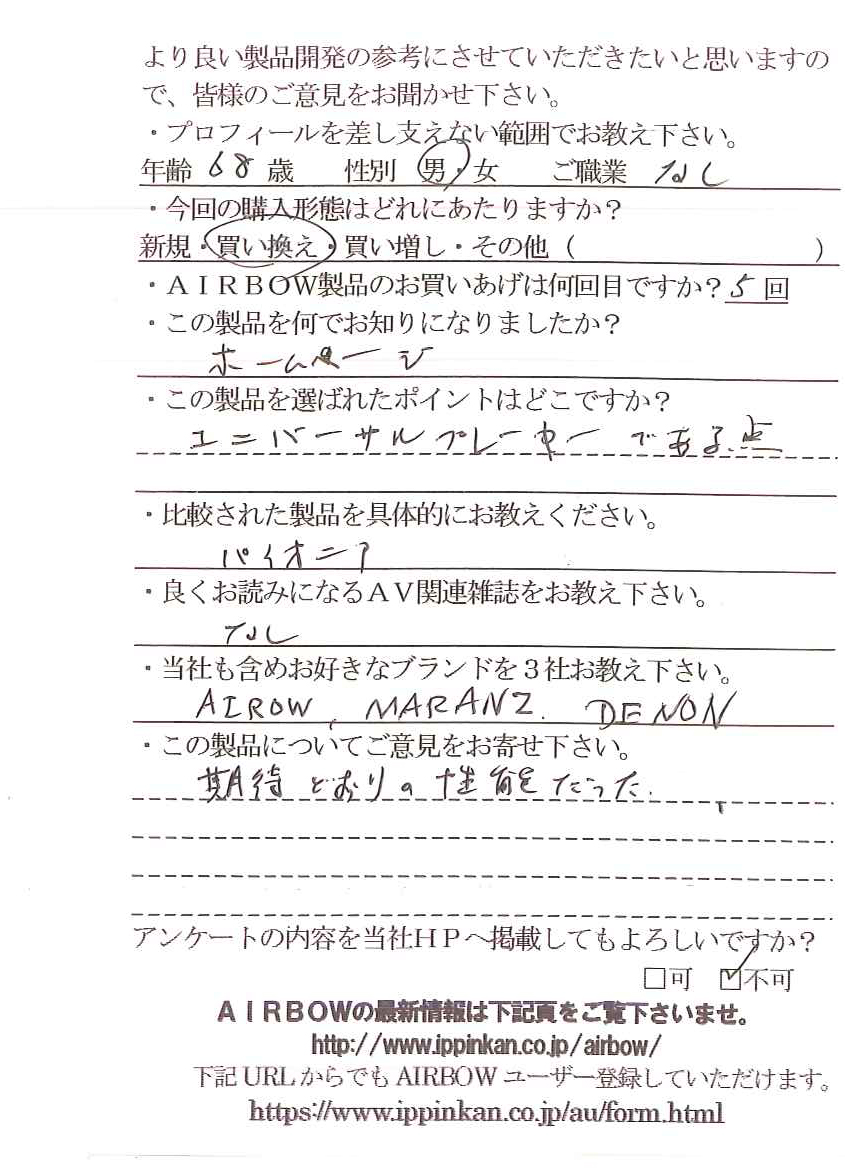 より良い製品開発の参考にさせていただきたいと思いますの
で、皆様のご意見をお聞かせ下さい。
・プロフィールを差し支えない範囲でお教え下さい。
年齢 68 歳 性別 男・女 ご職業 なし
・今回の購入形態はどれにあたりますか？
新規・買い換え・買い増し・その他（ ）
・ＡＩＲＢＯＷ製品のお買いあげは何回目ですか？ 5 回
・この製品を何でお知りになりましたか？
ホームページ
・この製品を選ばれたポイントはどこですか？
ユニバーサルプレーヤーである点
・比較された製品を具体的にお教えください。
パイオニア
・良くお読みになるＡＶ関連雑誌をお教え下さい。
なし
・当社も含めお好きなブランドを３社お教え下さい。
AIROW, MARANZ. DENON
・この製品についてご意見をお寄せ下さい。
期待どおりの性能だった.
アンケートの内容を当社ＨＰへ掲載してもよろしいですか？
□可 ☑不可
ＡＩＲＢＯＷの最新情報は下記頁をご覧下さいませ。
http://www.ippinkan.co.jp/airbow/
下記 URL からでも AIRBOW ユーザー登録していただけます。
https://www.ippinkan.co.jp/au/form.html